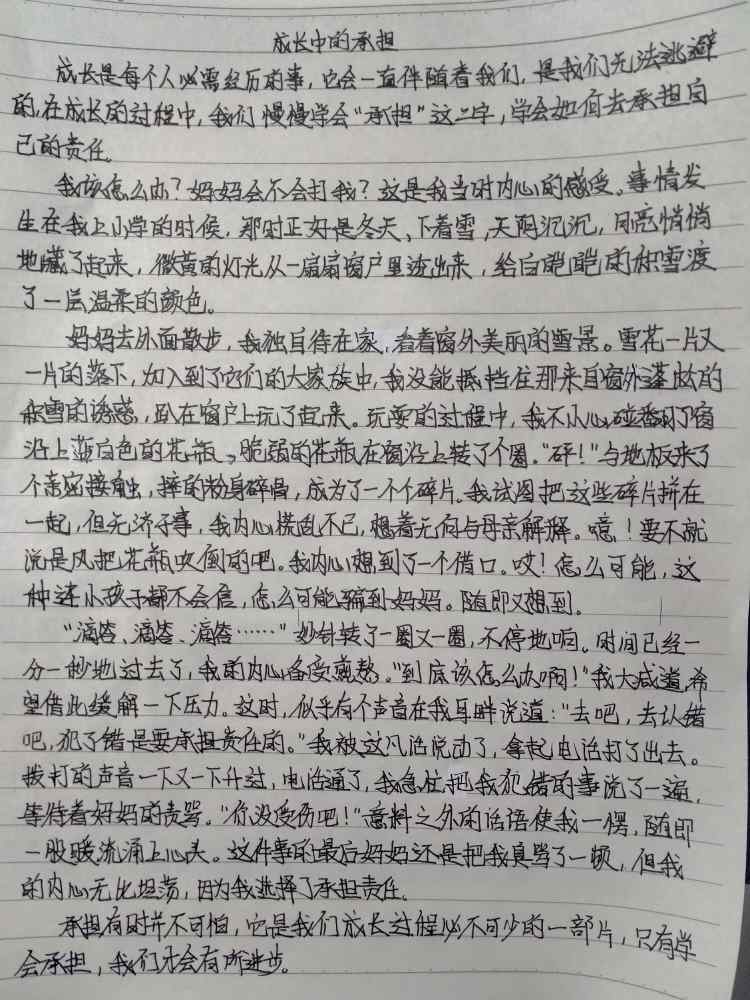 成长中的承担
成长是每个人必需经历的事，它会一直伴随着我们，是我们无法逃避
的，在成长的过程中，我们慢慢学会“承担”这二字，学会如何去承担自
己的责任。
我该怎么办？妈妈会不会打我？这是我当时内心的感受。事情发
生在我上小学的时候，那时正好是冬天，下着雪，天阴沉沉，月亮悄悄
地藏了起来，微黄的灯光从一扇扇窗户里透出来，给白皑皑的积雪渡
了一层温柔的颜色。
妈妈去外面散步，我独自待在家，看着窗外美丽的雪景。雪花一片又
一片的落下，加入到了它们的大家族中，我没能抵挡住那来自窗外蓬松的
积雪的诱惑，趴在窗户上玩了起来。玩耍的过程中，我不小心碰翻了窗
沿上蓝白色的花瓶，脆弱的花瓶在窗沿上转了个圈。“砰！”与地板来了
个亲密接触，摔的粉身碎骨，成为了一个个碎片。我试图把这些碎片拼在
一起，但无济于事，我内心慌乱不已，想着无何与母亲解释。噫！要不就
说是风把花瓶吹倒的吧。我内心想到了一个借口。哎！怎么可能，这
种连小孩子都不会信，怎么可能骗到妈妈。随即又想到。
“滴答、滴答、滴答……”妙针转了一圈又一圈，不停地响。时间已经一
分一秒地过去了，我的内心备受煎熬。“到底该怎么办啊！”我大喊道，希
望借此缓解一下压力。这时，似乎有个声音在我耳畔说道：“去吧，去认错
吧，犯了错是要承担责任的。”我被这几话说动了，拿起电话打了出去。
拨打的声音一下又一下升过，电话通了，我急忙把我犯错的事说了一遍，
等待着妈妈的责骂。“你没受伤吧！”意料之外的话语使我一愣，随即
一股暖流涌上心头。这件事的最后妈妈还是把我臭骂了一顿，但我
的内心无比坦荡，因为我选择了承担责任。
承担有时并不可怕，它是我们成长过程必不可少的一部片，只有学
会承担，我们才会有所进步。